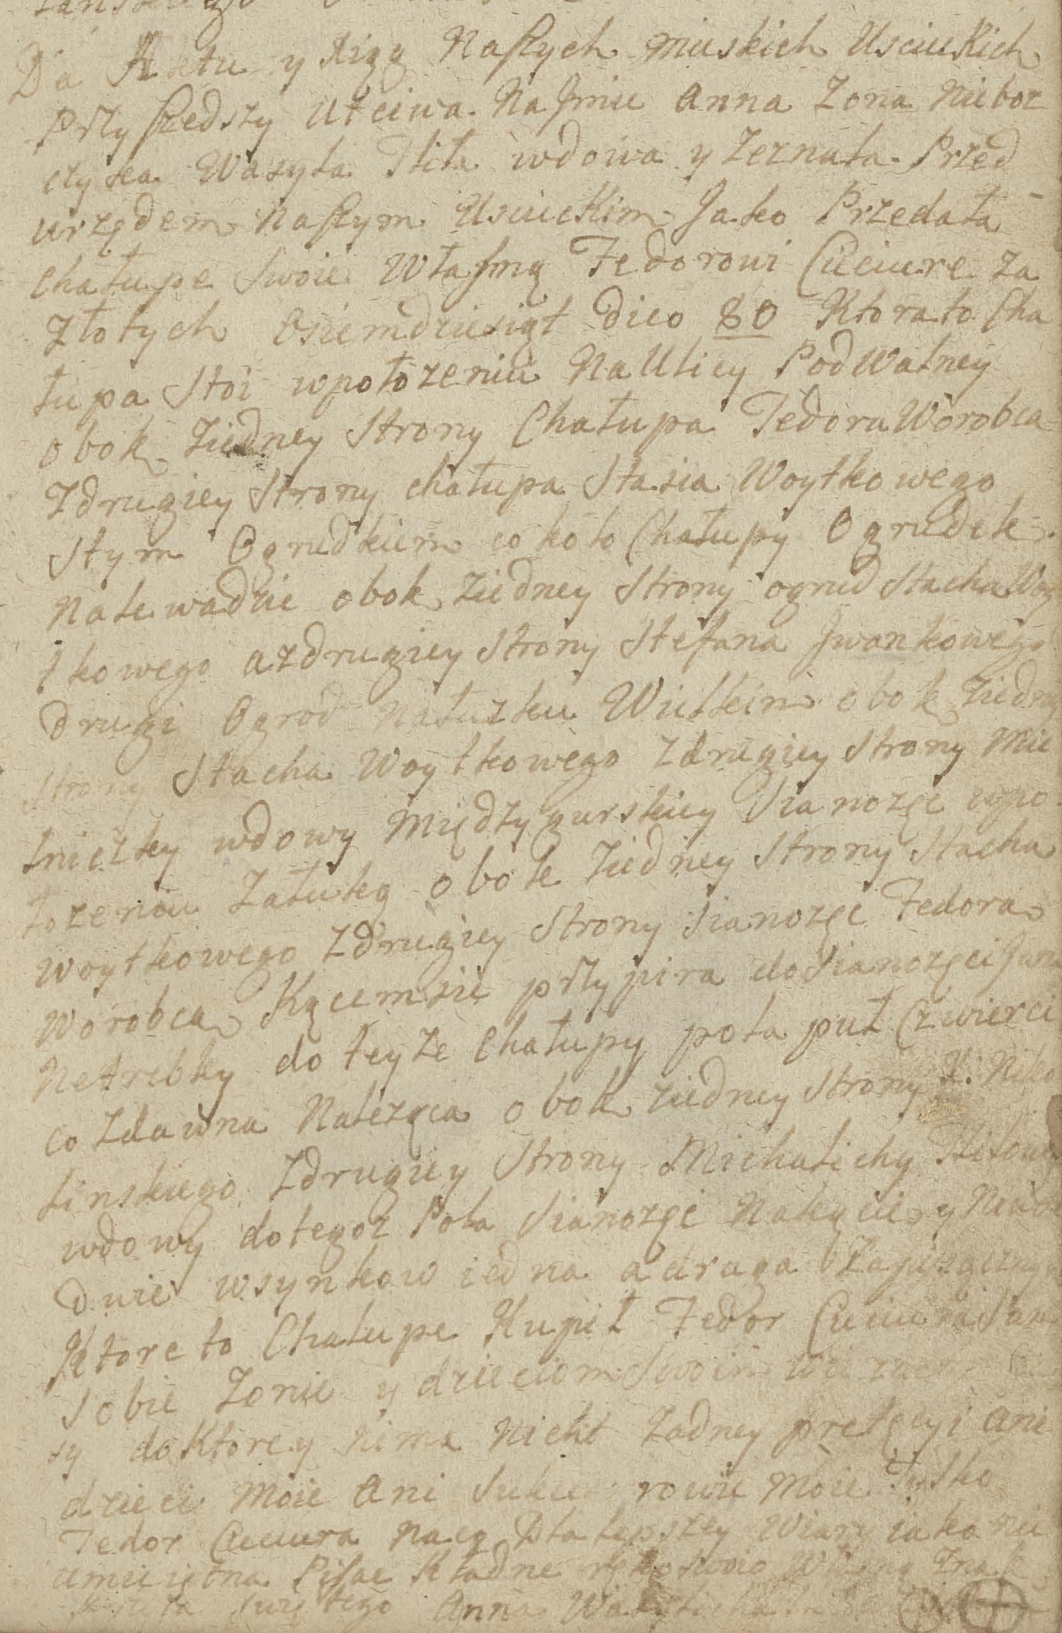 Do Aktu y Xiąg Naszych Mieskich Uscieckich
Przyszedszy Ucciwa Na Jmie Anna Zona Niebosz
czyka Wasyla wdowa y Zeznała Przed
urzędem Naszym Uscieckim Jako Przedała
Chałupe Swoie Własną Fedorowi Cieciure za
Złotych Osiemdziesiąt dico 80 Ktora to Cha
łupa Stoi w połozeniu Na Ulicy Podwalney
obok Ziedney Strony Chałupa Fedora Worobca
Zdrugiey Strony chałupa Stasia Woytkowego
Stym Ogrudkiem co koło Chałupy Ogrudek
Na Lewadzie obok Ziedney Strony ogrud Stacha Woy
tkowego a zdrugiey Strony Stefana Jwankowego
drugi Ogrod Na Łuzku Wielkim obok Ziedney
Strony Stacha Woytkowego Zdrugiey Strony Mie
lniczky wdowy Między gurskiey Sianozęc wpo
łozeniu Załuką obok Ziedney Strony Stacha
Woytkowego Zdrugiey Strony Sianozęc Fedora
Worobca Kącem sie przypira do Sianozęci Jwana
Netrebky do teyze Chałupy pola puł Czwierci
co Zdawna Naleząca obok Ziedney Strony
linskiego Zdrugiey Strony Michalichy
wdowy do tegoz Pola Sianozęci Na kącie y
Dwie w synkow iedna a druga
Ktore to Chałupe Kupił Fedor Cieciura Sam
Sobie Zonie y dzieciom Swoim
sy do Ktorey Nima Nicht Zadney pretęcyi ani
dzieci Moie Ani Sukcesorowie Moie Tylko
Fedor Cieciura Na co Dla Lepszey Wiary iako nie
umieiętna Pisac Kładne ręką swoio Własną Znak
Krzyża Swiętego Anna Wasylicha